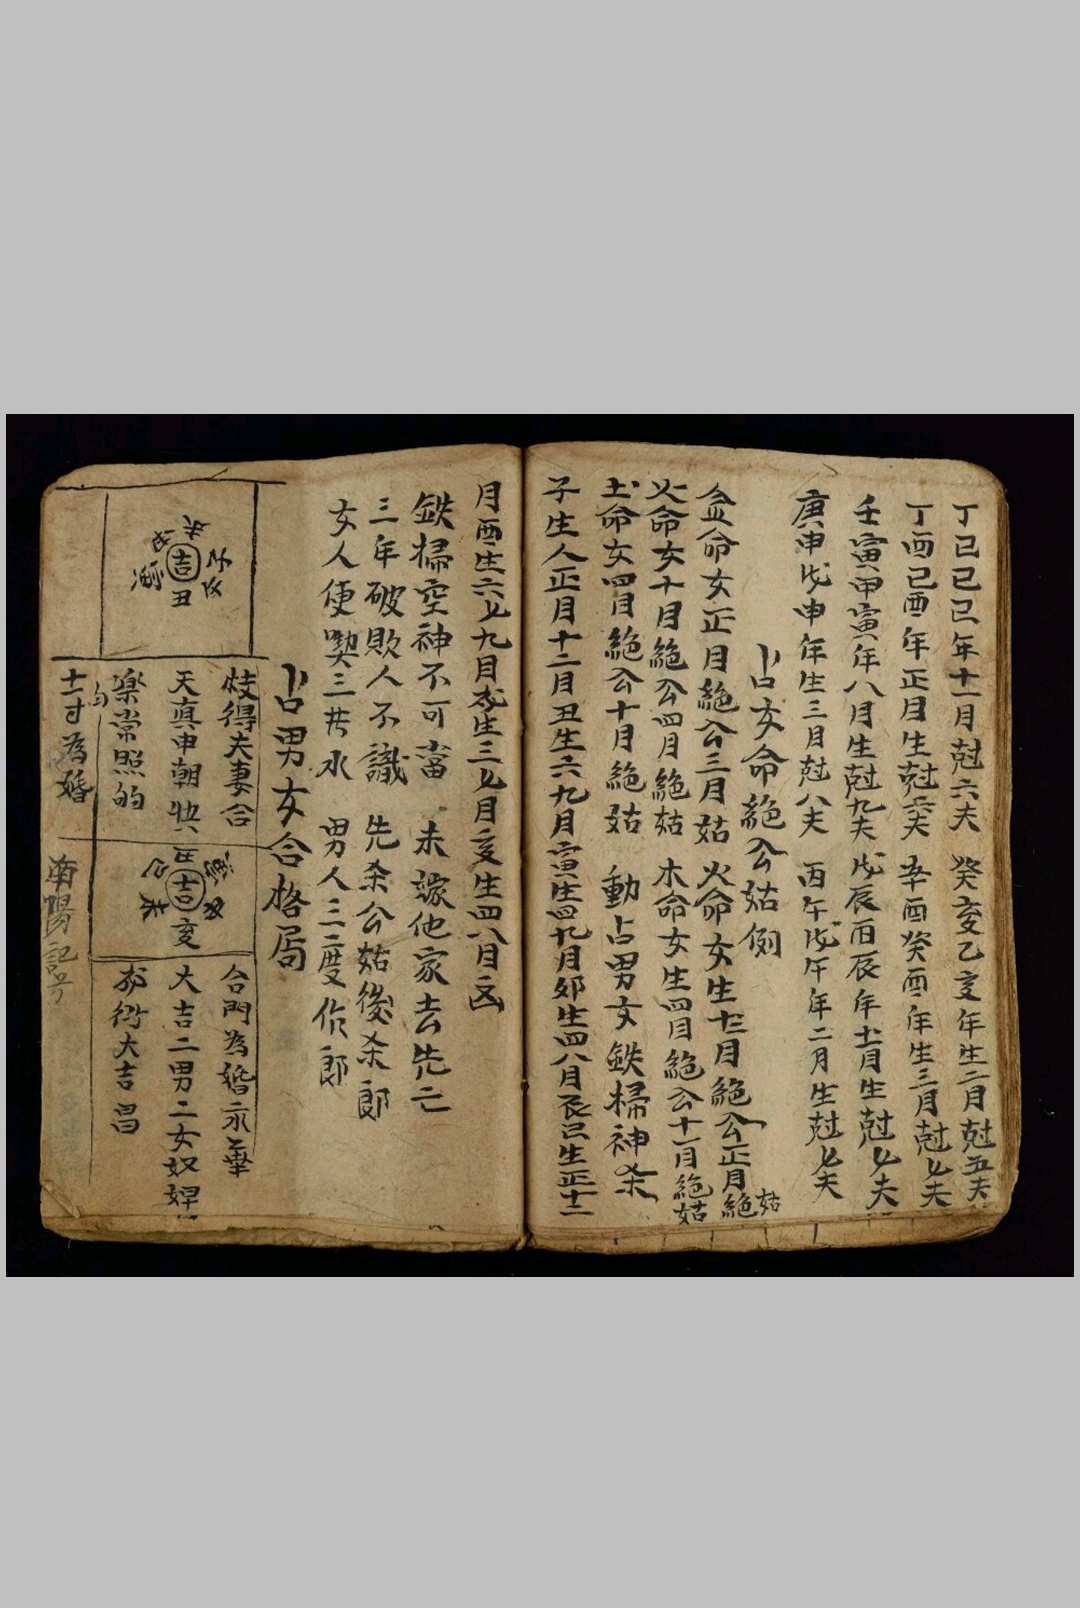 丁巳己巳年十一月尅六夫　癸亥乙亥年生二月尅五夫
丁酉己酉年正月生尅六夫　辛酉癸酉年生三月尅七夫
壬寅甲寅年八月生尅九夫　戊辰丙辰年十一月生尅七夫
庚申戊申年生三月尅八夫　丙午戊午年二月生尅七夫
占女命絕公姑例
金命女正月絕公三月姑　火命女生十二月絕公正月絕姑
火命女十月絕公四月絕姑　木命女生四月絕公十一月絕姑
土命女四月絕公十月絕姑　動占男女鉄掃神杀
子生人正月十二月丑生六九月寅生四九月卯生四八月辰巳生正十二
月酉生六七九月戌生三七月亥生四八月
鉄掃空神不可當　未嫁他家去先亡
三年破敗人不識　先杀公姑後杀郎
女人便喫三井水　男人三度作郎
占男女合格局
吉
丑
得夫妻合
天真申朝
楽常照的
十二寸為婚
吉
亥
合門為婚永華
大吉二男二女奴婢
大吉昌
南陽記号